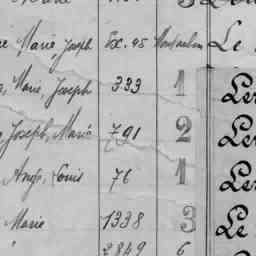 Marie, Joseph Ex. 45 Montauban Le
Marie, Joseph 333 1 Ler
Joseph, Marie 791 2 Ler
Ange, Louis 76 1 Ler
Marie 1338 3 Le
" 2849 6